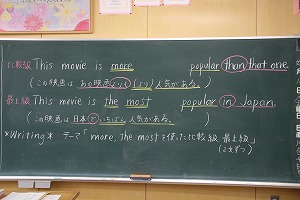 比較級 This movie is more popular than that one.
(この映画は あの映画よりも (より)人気がある。)
最上級 This movie is the most popular in Japan.
(この映画は 日本で いちばん人気がある。)
*Writing* テーマ「more, the mostを使った比較級、最上級」
(2文ずつ)